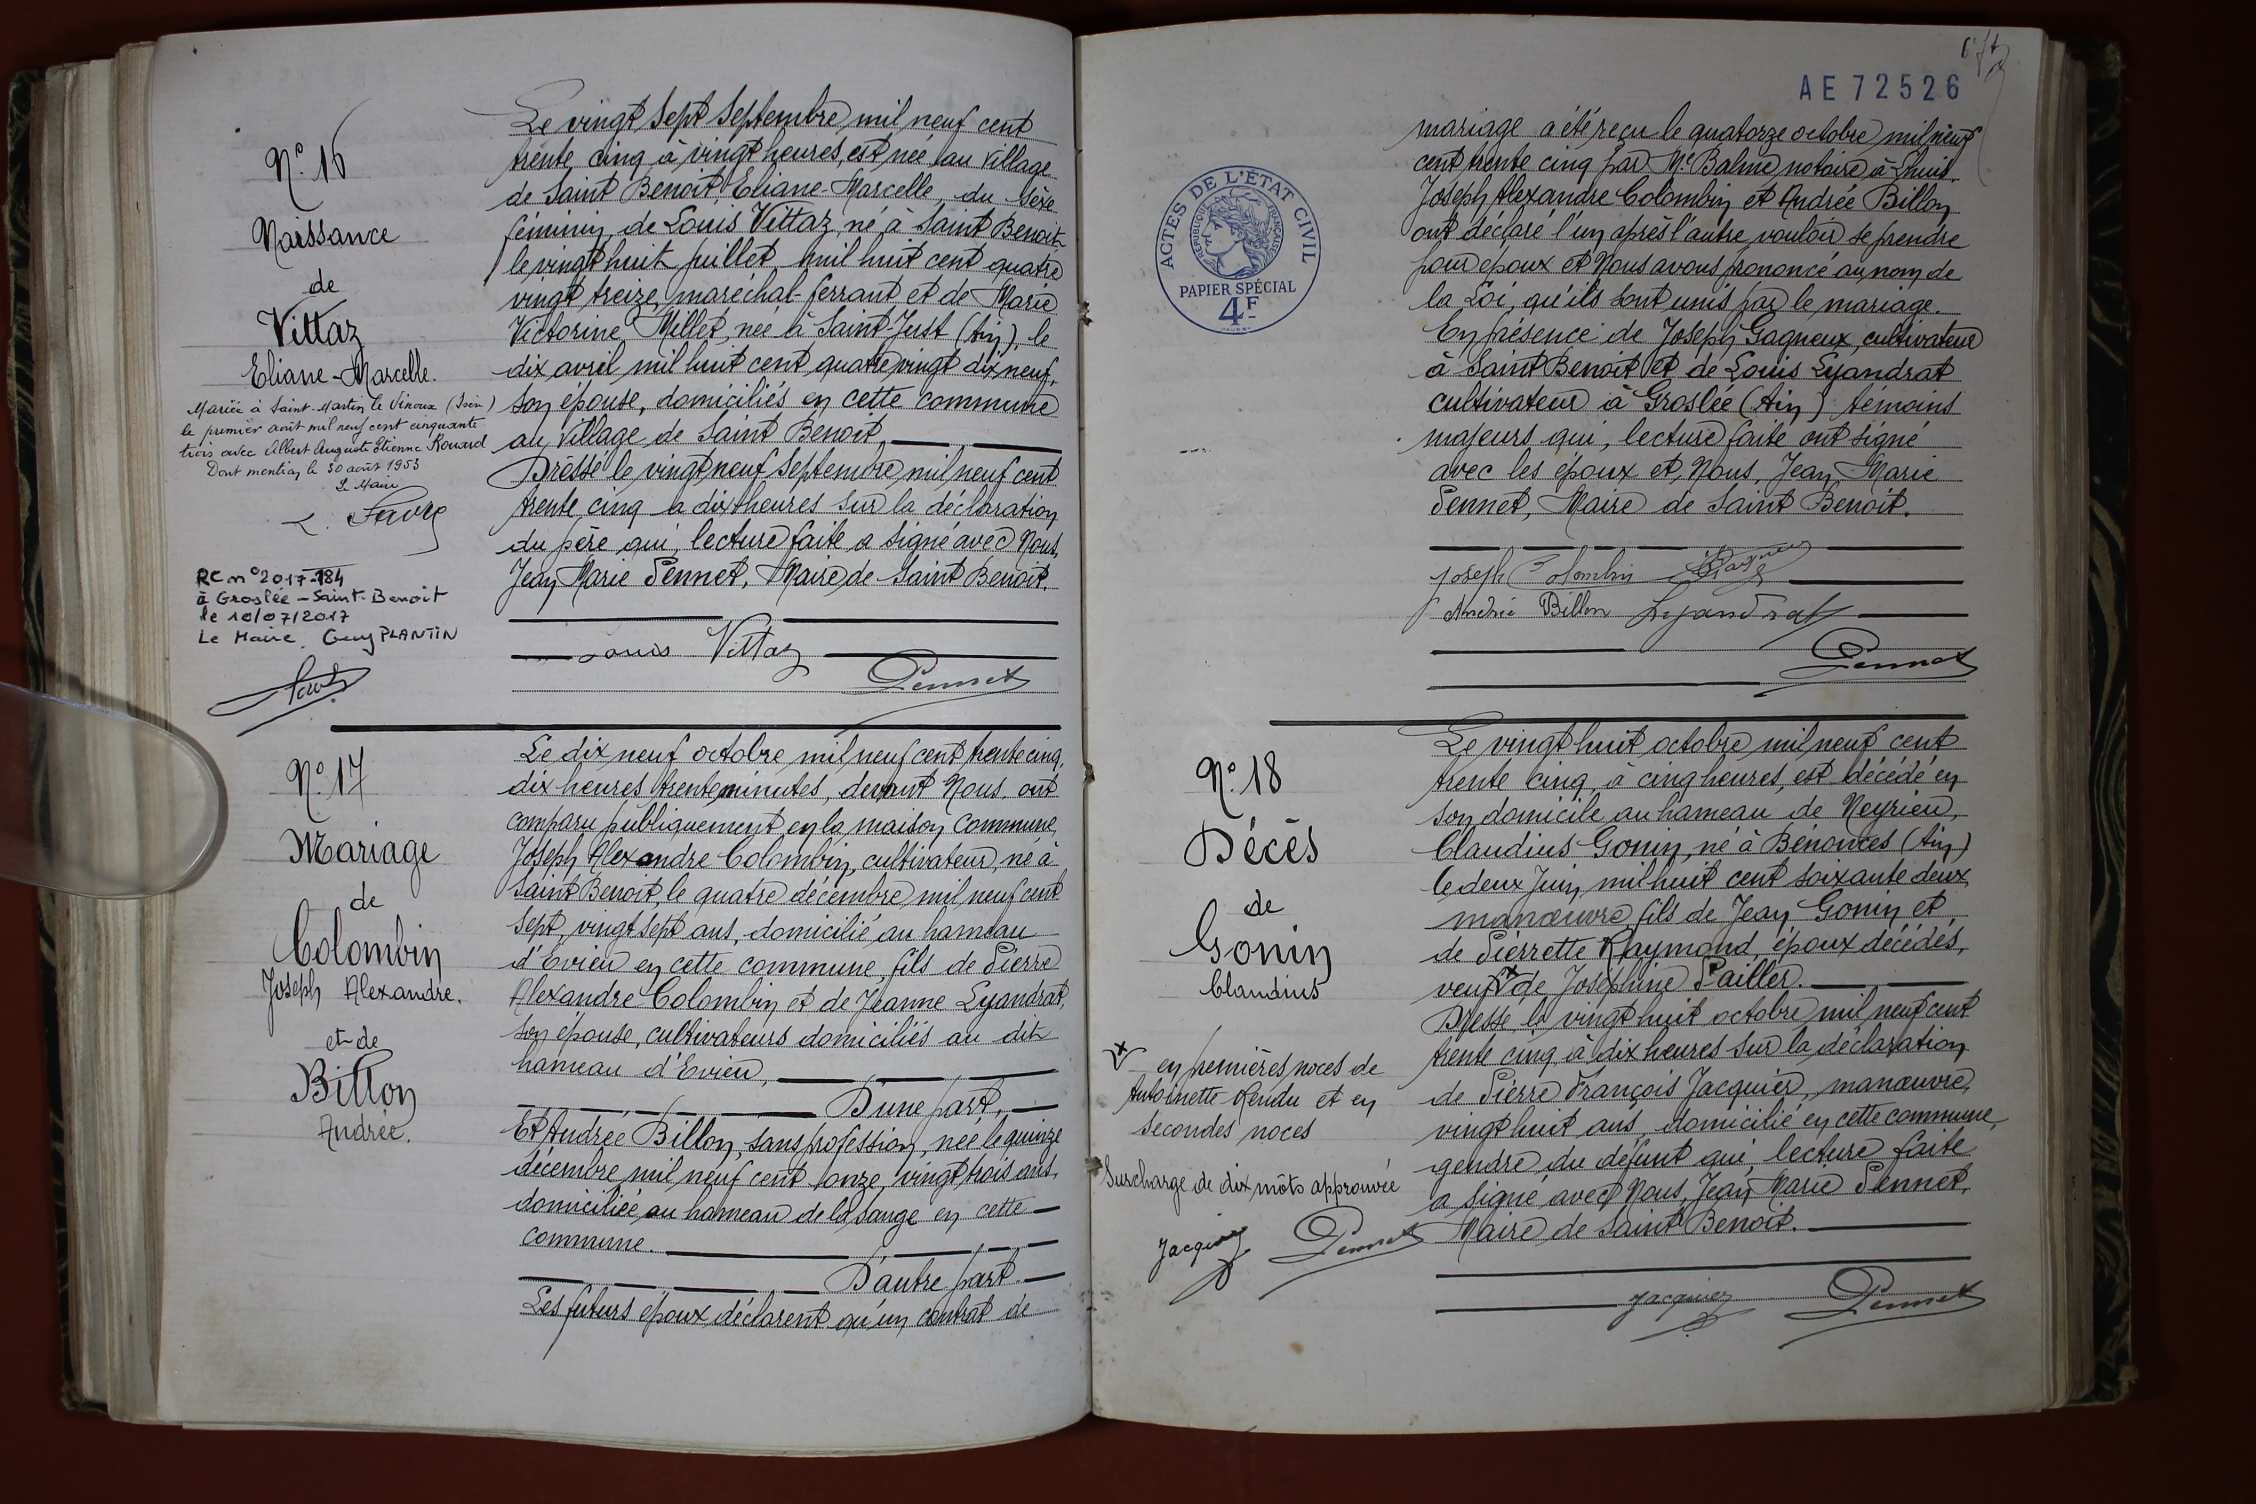 N° 16
Naissance
de
Vittaz
Eliane-Marcelle.
Mariée à Saint-Martin le Vinoux (Isère)
le premier août mil neuf cent cinquante
trois avec Albert Auguste Etienne Rouard
Dont mention le 30 août 1953
Le Maire
RC n° 2017-184
à Groslée-Saint-Benoit
le 10/07/2017
Le Maire, Guy PLANTIN
Le vingt sept Septembre mil neuf cent
trente cinq à vingt heures, est née au village
de Saint Benoit, Eliane-Marcelle, du sexe
féminin, de Louis Vittaz, né à Saint Benoit
le vingt huit juillet mil huit cent quatre
vingt treize, maréchal-ferrant et de Marie
Victorine Millet, née à Saint-Just (Ain), le
dix avril mil huit cent quatre vingt dix neuf,
son épouse, domiciliés en cette commune
au village de Saint Benoit.
Dressé le vingt neuf Septembre mil neuf cent
trente cinq à dix heures sur la déclaration
du père qui, lecture faite a signé avec Nous,
Jean Marie Pennet, Maire de Saint Benoit.
Louis Vittaz
Pennet
N° 17
Mariage
de
Colombin
Joseph Alexandre.
et de
Billon
Andrée.
Le dix neuf octobre mil neuf cent trente cinq,
dix heures trente minutes, devant Nous, ont
comparu publiquement en la maison commune,
Joseph Alexandre Colombin, cultivateur, né à
Saint Benoit, le quatre décembre mil neuf cent
sept, vingt sept ans, domicilié au hameau
d'Evieu en cette commune, fils de Pierre
Alexandre Colombin et de Jeanne Lyandrat,
son épouse, cultivateurs domiciliés au dit
hameau d'Evieu,
D'une part,
Et Andrée Billon, sans profession, née le quinze
décembre mil neuf cent onze, vingt trois ans,
domiciliée au hameau de la Sauge en cette
commune.
D'autre part.
Les futurs époux déclarent qu'un contrat de
AE 72526
ACTES DE L'ÉTAT CIVIL
RÉPUBLIQUE FRANÇAISE
PAPIER SPÉCIAL
4F
mariage a été reçu le quatorze octobre mil neuf
cent trente cinq par Me Balme notaire à Lhuis.
Joseph Alexandre Colombin et Andrée Billon
ont déclaré l'un après l'autre vouloir se prendre
pour époux et Nous avons prononcé au nom de
la Loi, qu'ils sont unis par le mariage.
En présence de Joseph Gagneux, cultivateur
à Saint Benoit et de Louis Lyandrat
cultivateur à Groslée (Ain) témoins
majeurs qui, lecture faite ont signé
avec les époux et Nous, Jean Marie
Pennet, Maire de Saint Benoit.
Joseph Colombin Gagneux
Andrée Billon Lyandrat
Pennet
N° 18
Décès
de
Gonin
Claudius
Le vingt huit octobre mil neuf cent
trente cinq, à cinq heures, est décédé en
son domicile au hameau de Neyrieu,
Claudius Gonin, né à Bénonces (Ain)
le deux Juin mil huit cent soixante deux,
manœuvre, fils de Jean Gonin et
de Pierrette Raymond, époux décédés,
veuf x de Joséphine Pailler.
Dressé le vingt huit octobre mil neuf cent
trente cinq à dix heures sur la déclaration
de Pierre François Jacquier, manœuvre,
vingt huit ans, domicilié en cette commune,
gendre du défunt qui, lecture faite
a signé avec Nous, Jean Marie Pennet,
Maire de Saint Benoit.
Jacquier Pennet
x en premières noces de
Antoinette Rendu et en
secondes noces
Surcharge de dix mots approuvée
Jacquier Pennet